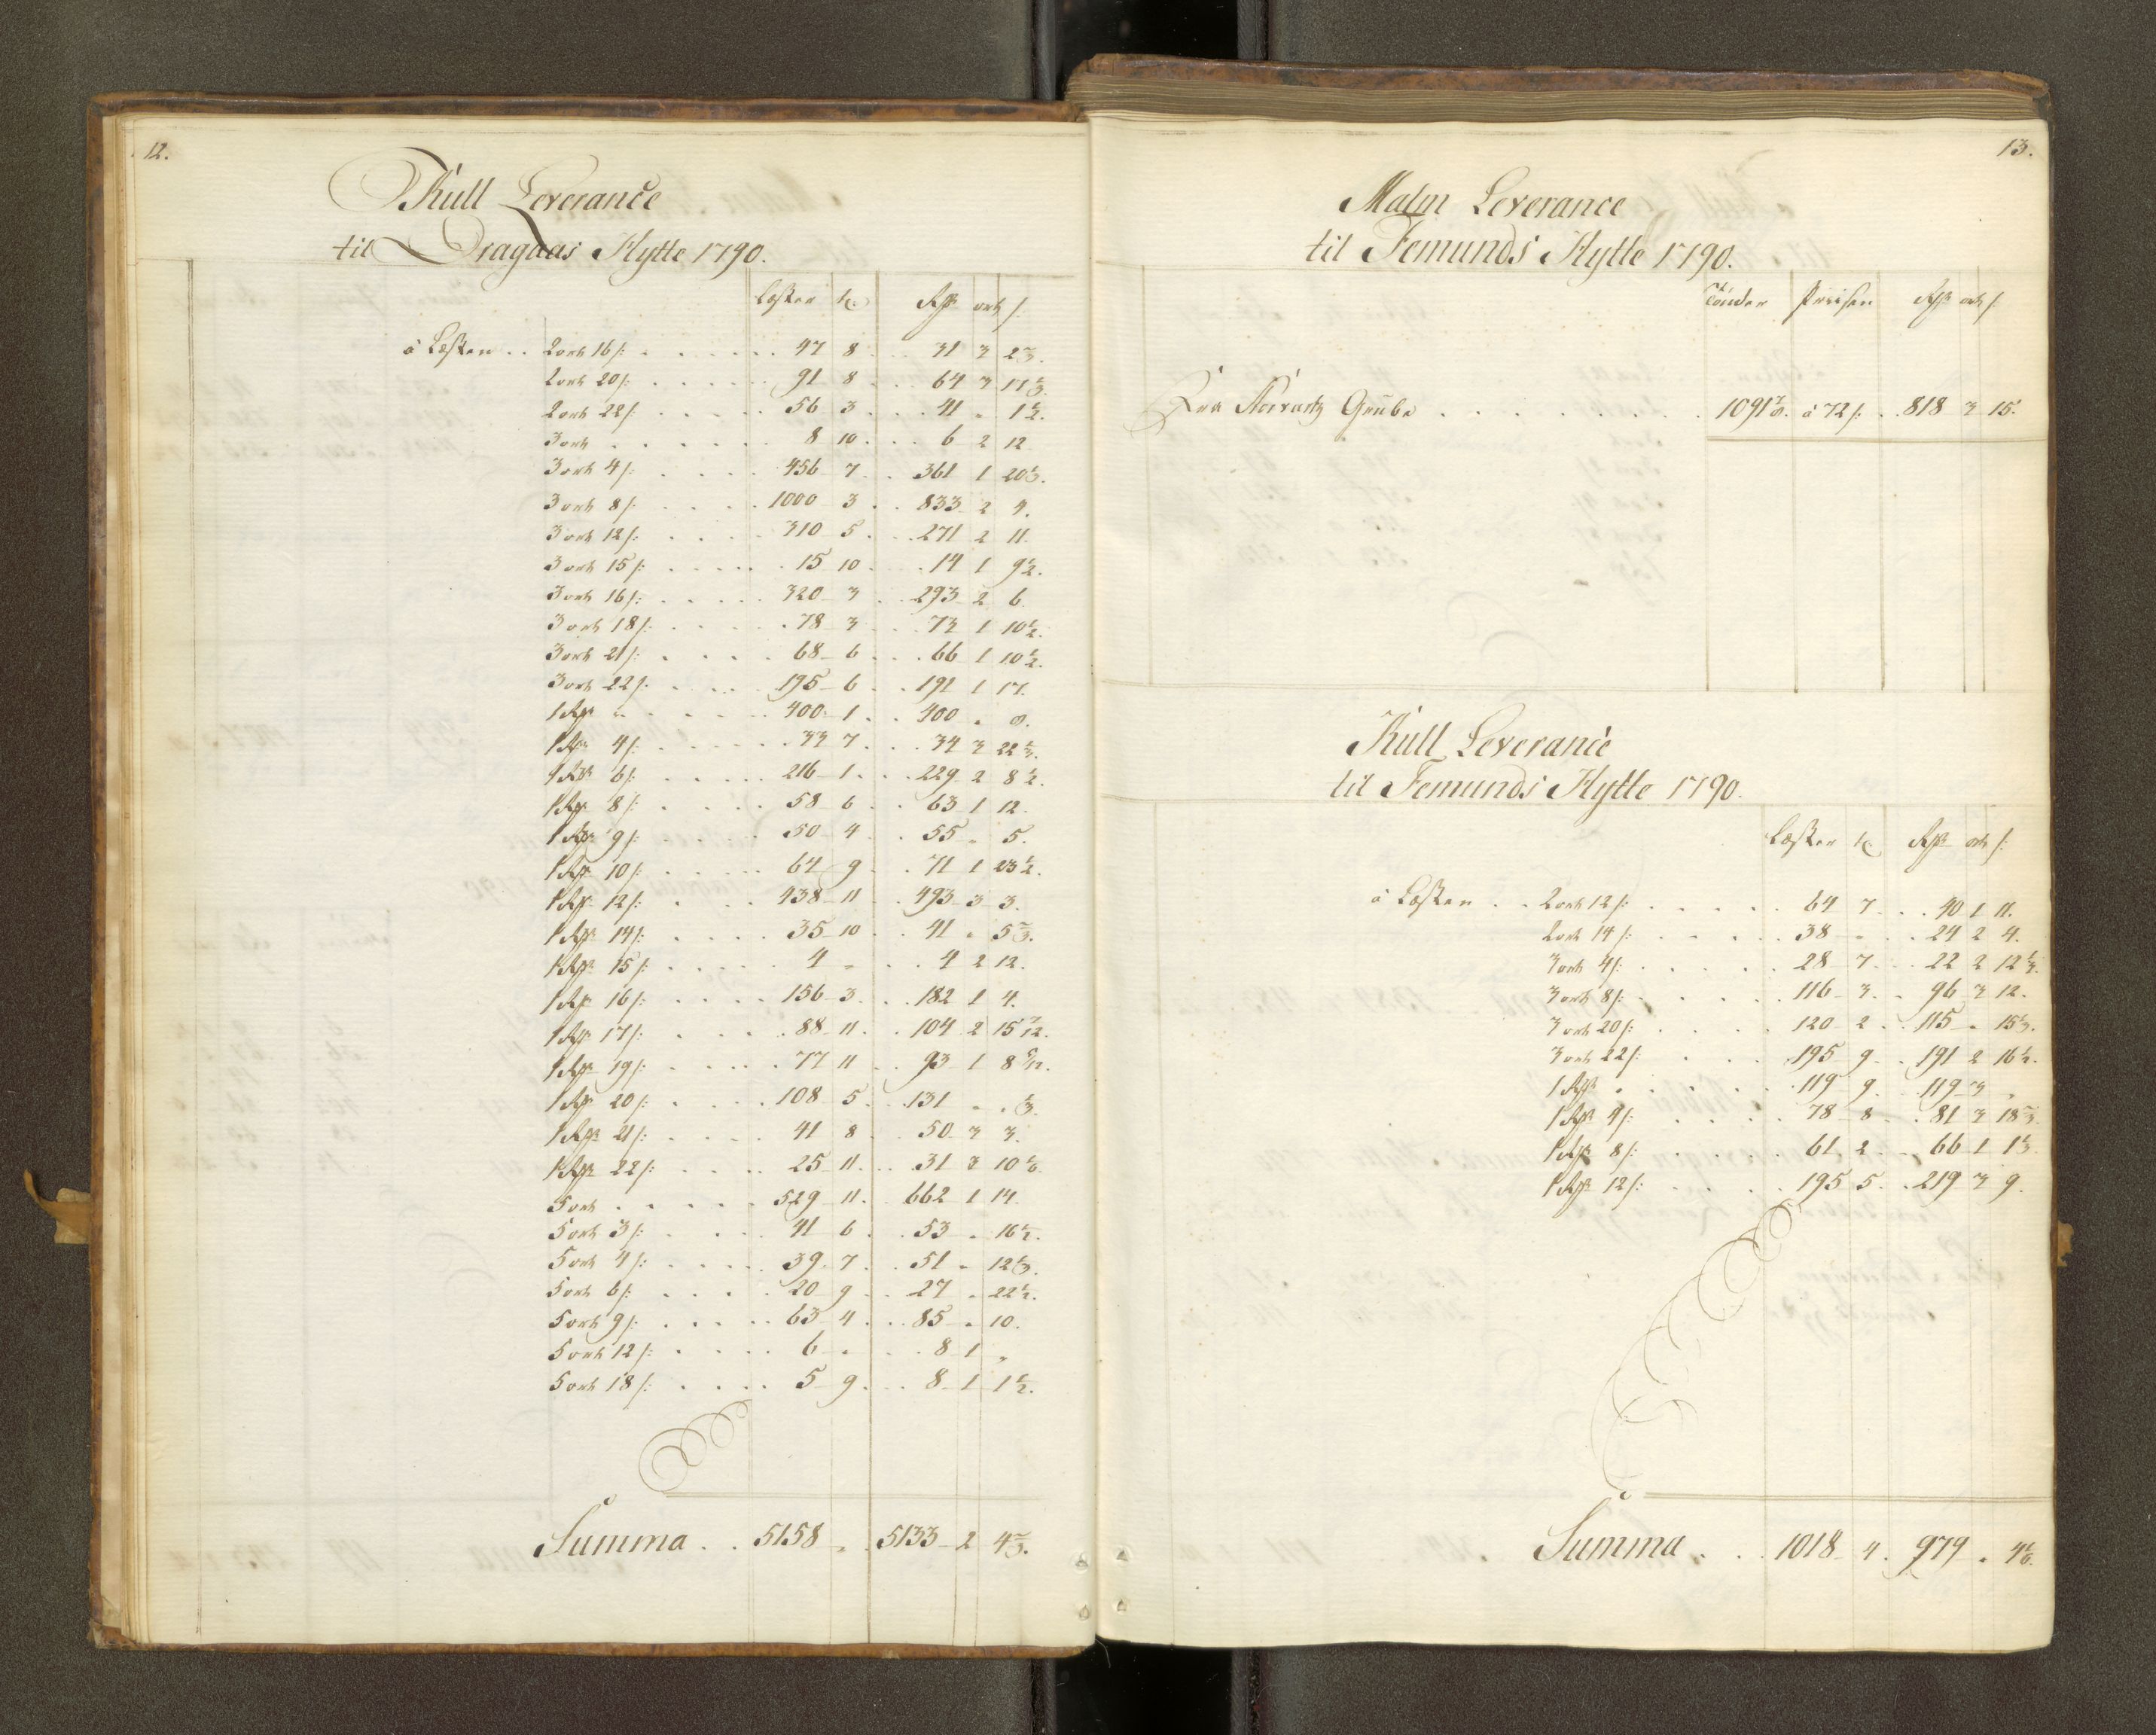 12.
Kull Leverance
til Dragaas Hytte 1790.
Læster t. Rdr ort s.
à Læsten .. 2 ort 16 s: . . . . . . 47 8 . . 31 3 2⅔.
2 ort 20 s: . . . . . 91 8 . . 64 3 17⅓.
2 ort 22 s: . . . . . 56 3 . . 41 „ 1½.
3 ort . . . . . . 8 10 . . 6 2 12
3 ort 4 s: . . . . 456 7 . . 361 1 20⅓.
3 ort 8 s: . . . . 1000 3 . . 833 2 4.
3 ort 12 s: . . . . 310 5 . . 271 2 11.
3 ort 15 s: . . . . . 15 10 . . 14 1 9½.
3 ort 16 s: . . . . . 320 3 . . 293 2 6.
3 ort 18 s: . . . . . 78 3 . . 73 1 10½.
3 ort 21 s: . . . . 68 6 . . 66 1 10½.
3 ort 22 s. . . . . 195 6 . . 191 1 17.
1 Rdr „ . . . . . 400 1 . . 400 „ 8.
1 Rdr 4 s: . . . . . . 33 7 . . 34 3 22⅓.
1 Rdr 6 s: . . . . . 216 1 . . 229 2 8½.
1 Rdr 8 s: . . . . 58 6 . . 63 1 12.
1 Rdr 9 s: . . . . 50 4 . . 55 „ 5.
1 Rdr 10 s: . . . . . 64 9 . . 71 1 23½.
1 Rdr 12 s: . . . . 438 11 . . 493 3 3.
1 Rdr 14 s: . . . . 35 10 . . 41 „ 5⅔.
1 Rdr 15 s: . . . . . 4 „ . . 4 2 12.
1 Rdr 16 s: . . . . 156 3 . . 182 1 4.
1 Rdr 17 s: . . . . 88 11 . . 104 2 15 7/12.
1 Rdr 19 s: . . . . . 77 11 . . 93 1 8 5/12.
1 Rdr 20 s: . . . . 108 5 . . 131 „ „ ⅓.
1 Rdr 21 s: . . . . 41 8 . . 50 3 3.
1 Rdr 22 s: . . . . 25 11 . . 31 3 10⅙.
5 ort . . . . . 529 11 . . 662 1 14.
5 ort 3 s: . . . . 41 6 . . 53 „ 16½.
5 ort 4 s: . . . . . 39 7 . . 51 „ 12⅓.
5 ort 6 s: . . . . 20 9 . . 27 „ 22½.
5 ort 9 s: . . . . . 63 4 . . 85 „ 10.
5 ort 12 s: . . . . 6 „ . . 8 1 „
5 ort 18 s: . . . . 5 9 . . 8 1 1½.
Summa . . 5158 „ . 5133 2 4⅔.
13.
Malm Leverance
til Femunds Hytte 1790.
Tönder Priisen Rdr ort s.
Fra Grube . . . . . . . . 1091⅞. à 72 s: . . 818 3 15.
Kull Leverance
til Femunds Hytte 1790.
Læster t. Rdr ort s:
à Læsten . . 2 ort 12 s: . . . . . 64 7 . . 40 1 11.
2 ort 14 s: . . . . . 38 „ . . 24 2 4.
3 ort 4 s: . . . . . 28 7 . . 22 2 12⅓.
3 ort 8 s: . . . . . 116 3 . . 96 3 12.
3 ort 20 s: . . . . 120 2 . . 115 „ 15⅓.
3 ort 22 s: . . . 195 9 . . 191 2 16½.
1 Rdr . . . . . . 119 9 . . 119 3 „
1 Rdr 4 s: . . . . 78 8 . . 81 3 18⅔.
1 Rdr 8 s: . . . . 61 2 . . 66 1 1⅓.
1 Rdr 12 s: . . . . 195 5 . . 219 3 9.
Summa . . . 1018 4 . 979 „ 4⅙.